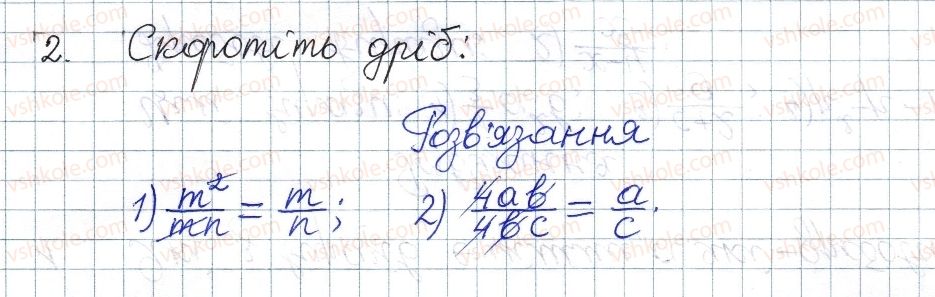 2. Скоротіть дріб:
Розв'язання
1) m²/mn = m/n; 2) 4ab/4bc = a/c.